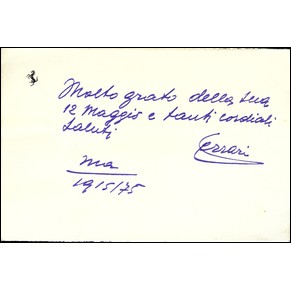 Molto grato della sua
12 Maggio e tanti cordiali
saluti
Ferrari
mo
19/5/75